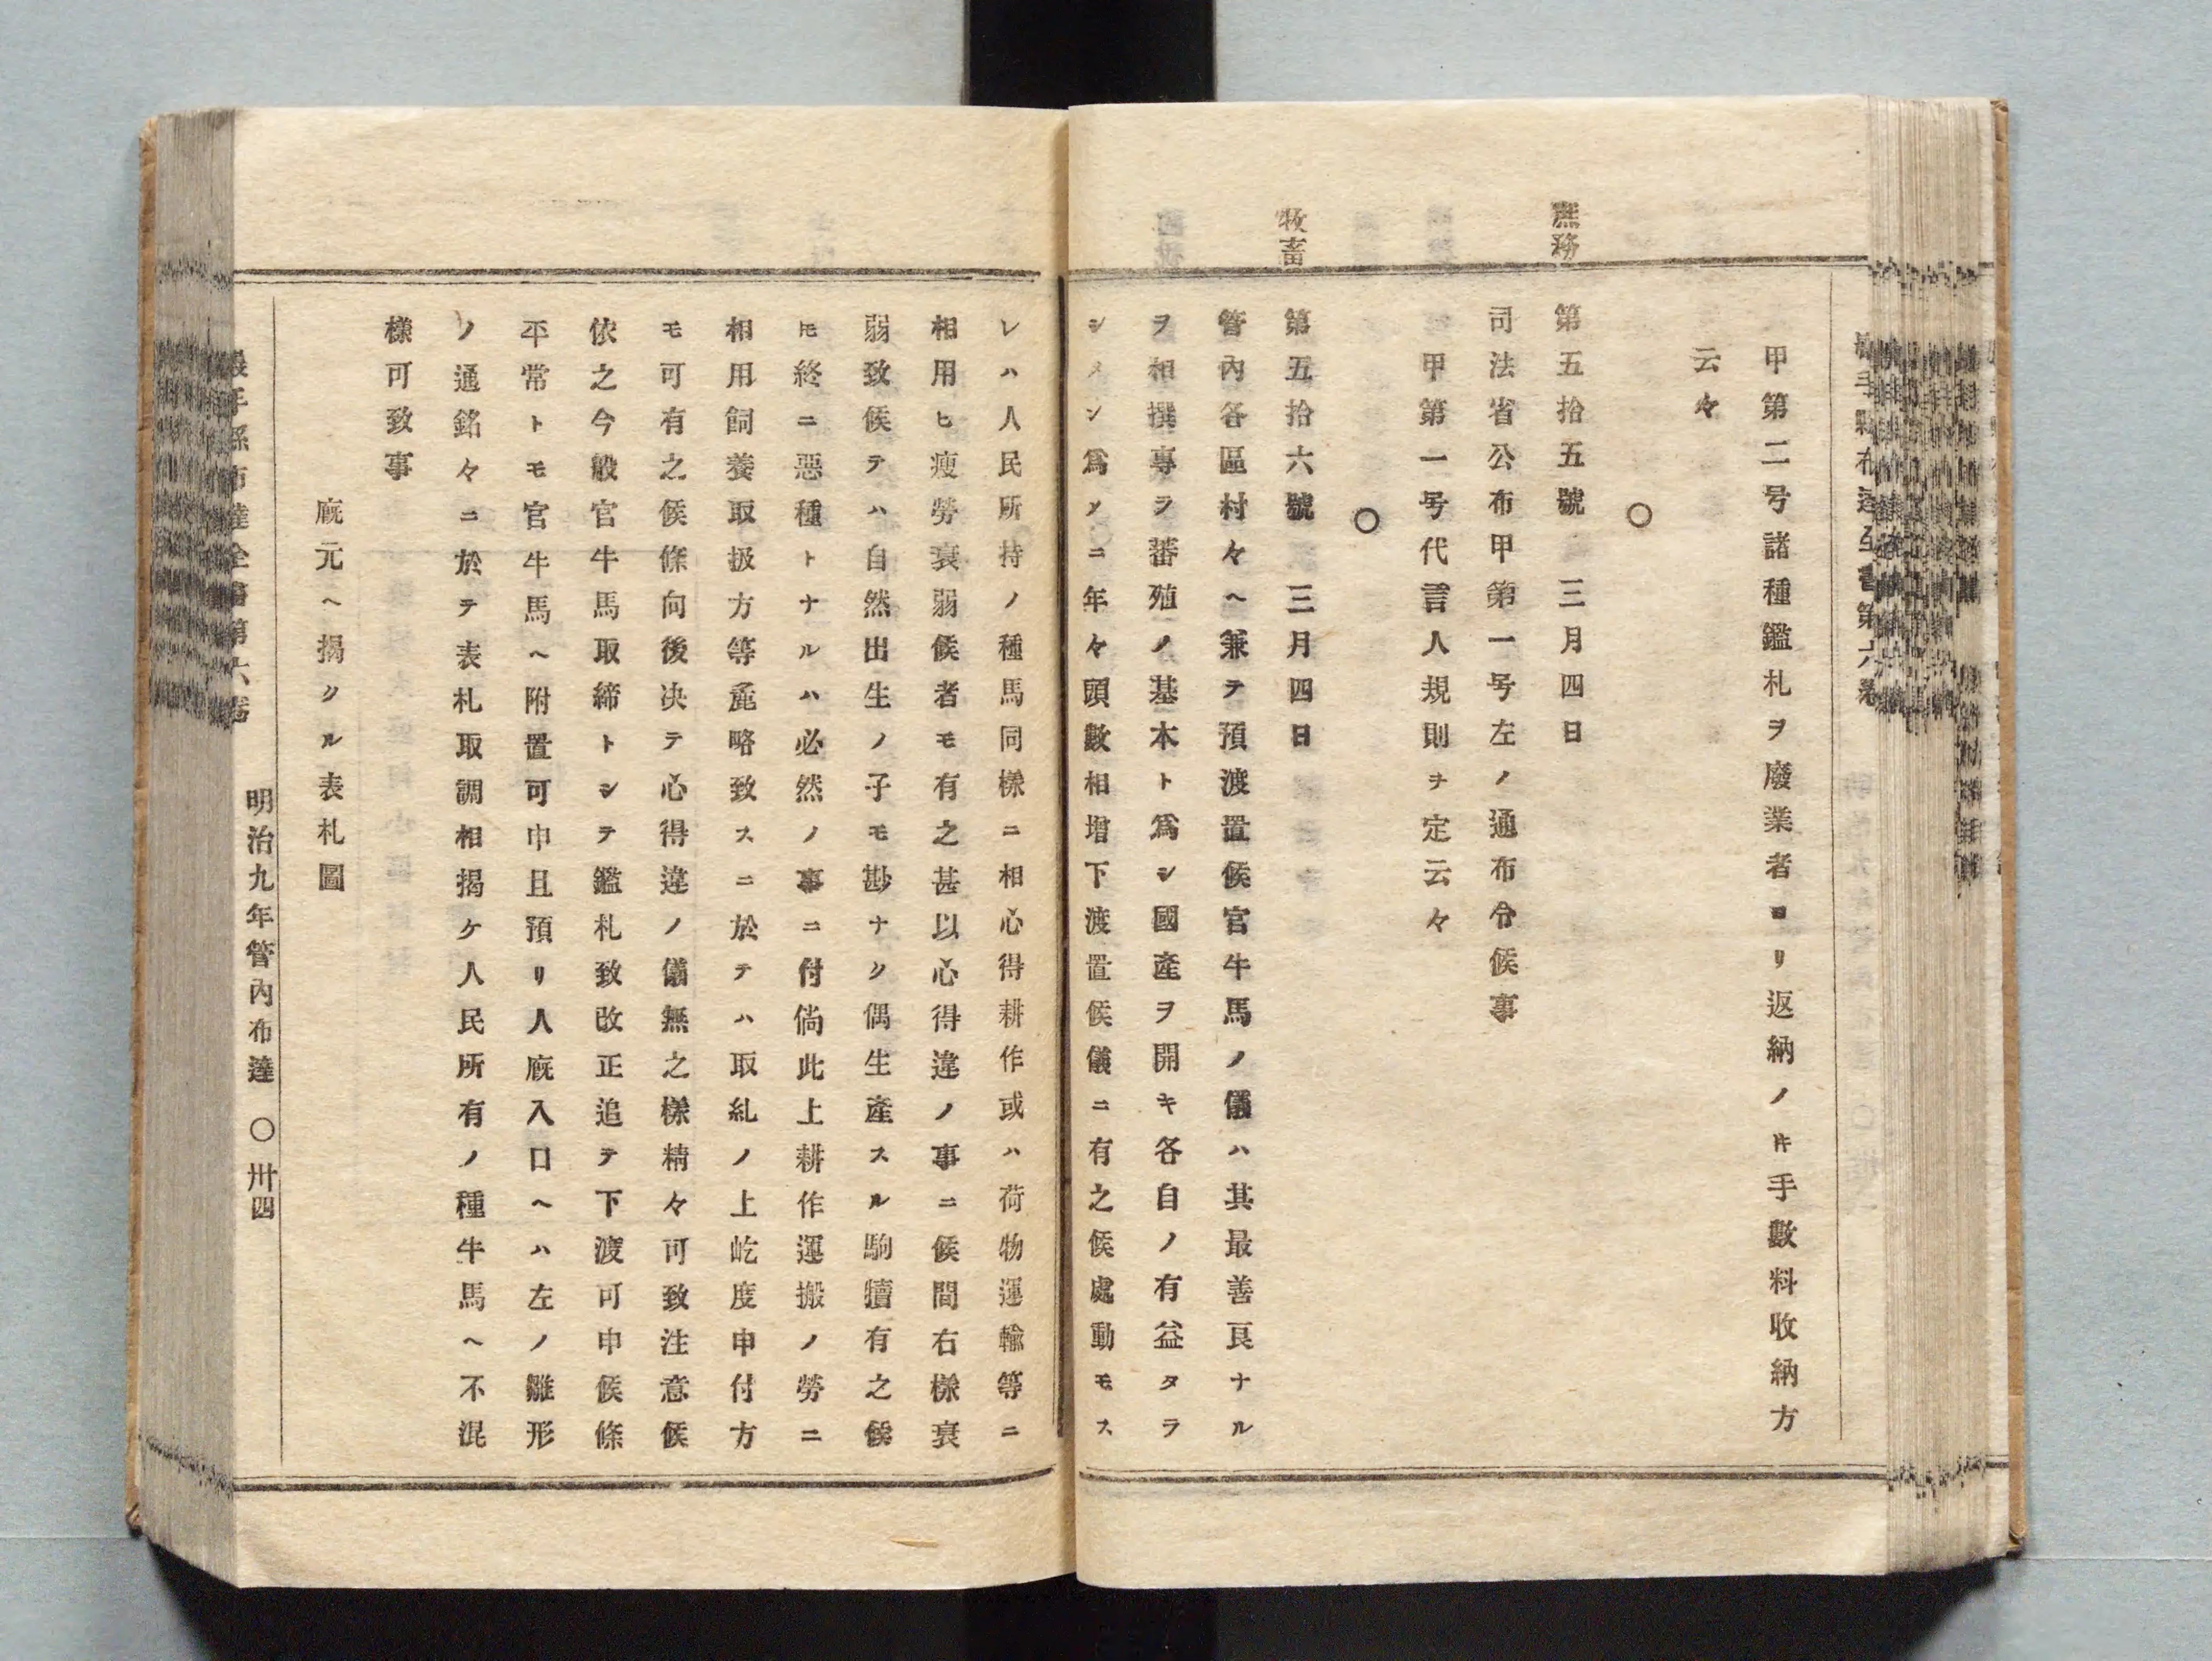 甲第二号諸種鑑札ヲ廢業者ヨリ返納ノ𪜈手數料收納方
云々
○
庶務
第五拾五號 三月四日
司法省公布甲第一号左ノ通布令候事
甲第一号代言人規則ヲ定云々
○
牧畜
第五拾六號 三月四日
管內各區村々ヘ兼テ預渡置候官牛馬ノ儀ハ其最善良ナル
ヲ相撰專ラ蕃殖ノ基本ト爲シ國產ヲ開キ各自ノ有益タラ
シメン爲メニ年々頭數相增下渡置候儀ニ有之候處動モス
レハ人民所持ノ種馬同樣ニ相心得耕作或ハ荷物運輸等ニ
相用ヒ瘦勞衰弱候者モ有之甚以心得違ノ事ニ候間右樣衰
弱致候テハ自然出生ノ子モ尠ナク偶生產スル駒犢有之候
𪜈終ニ惡種トナルハ必然ノ事ニ付倘此上耕作運搬ノ勞ニ
相用飼養取扱方等麁略致スニ於テハ取糺ノ上屹度申付方
モ可有之候條向後决テ心得違ノ儀無之樣精々可致注意候
依之今般官牛馬取締トシテ鑑札致改正追テ下渡可申候條
平常トモ官牛馬ヘ附置可申且預リ人廐入口ヘハ左ノ雛形
ノ通銘々ニ於テ表札取調相揭ケ人民所有ノ種牛馬ヘ不混
樣可致事
廐元ヘ揭クル表札圖
明治九年管內布達 ○卅四